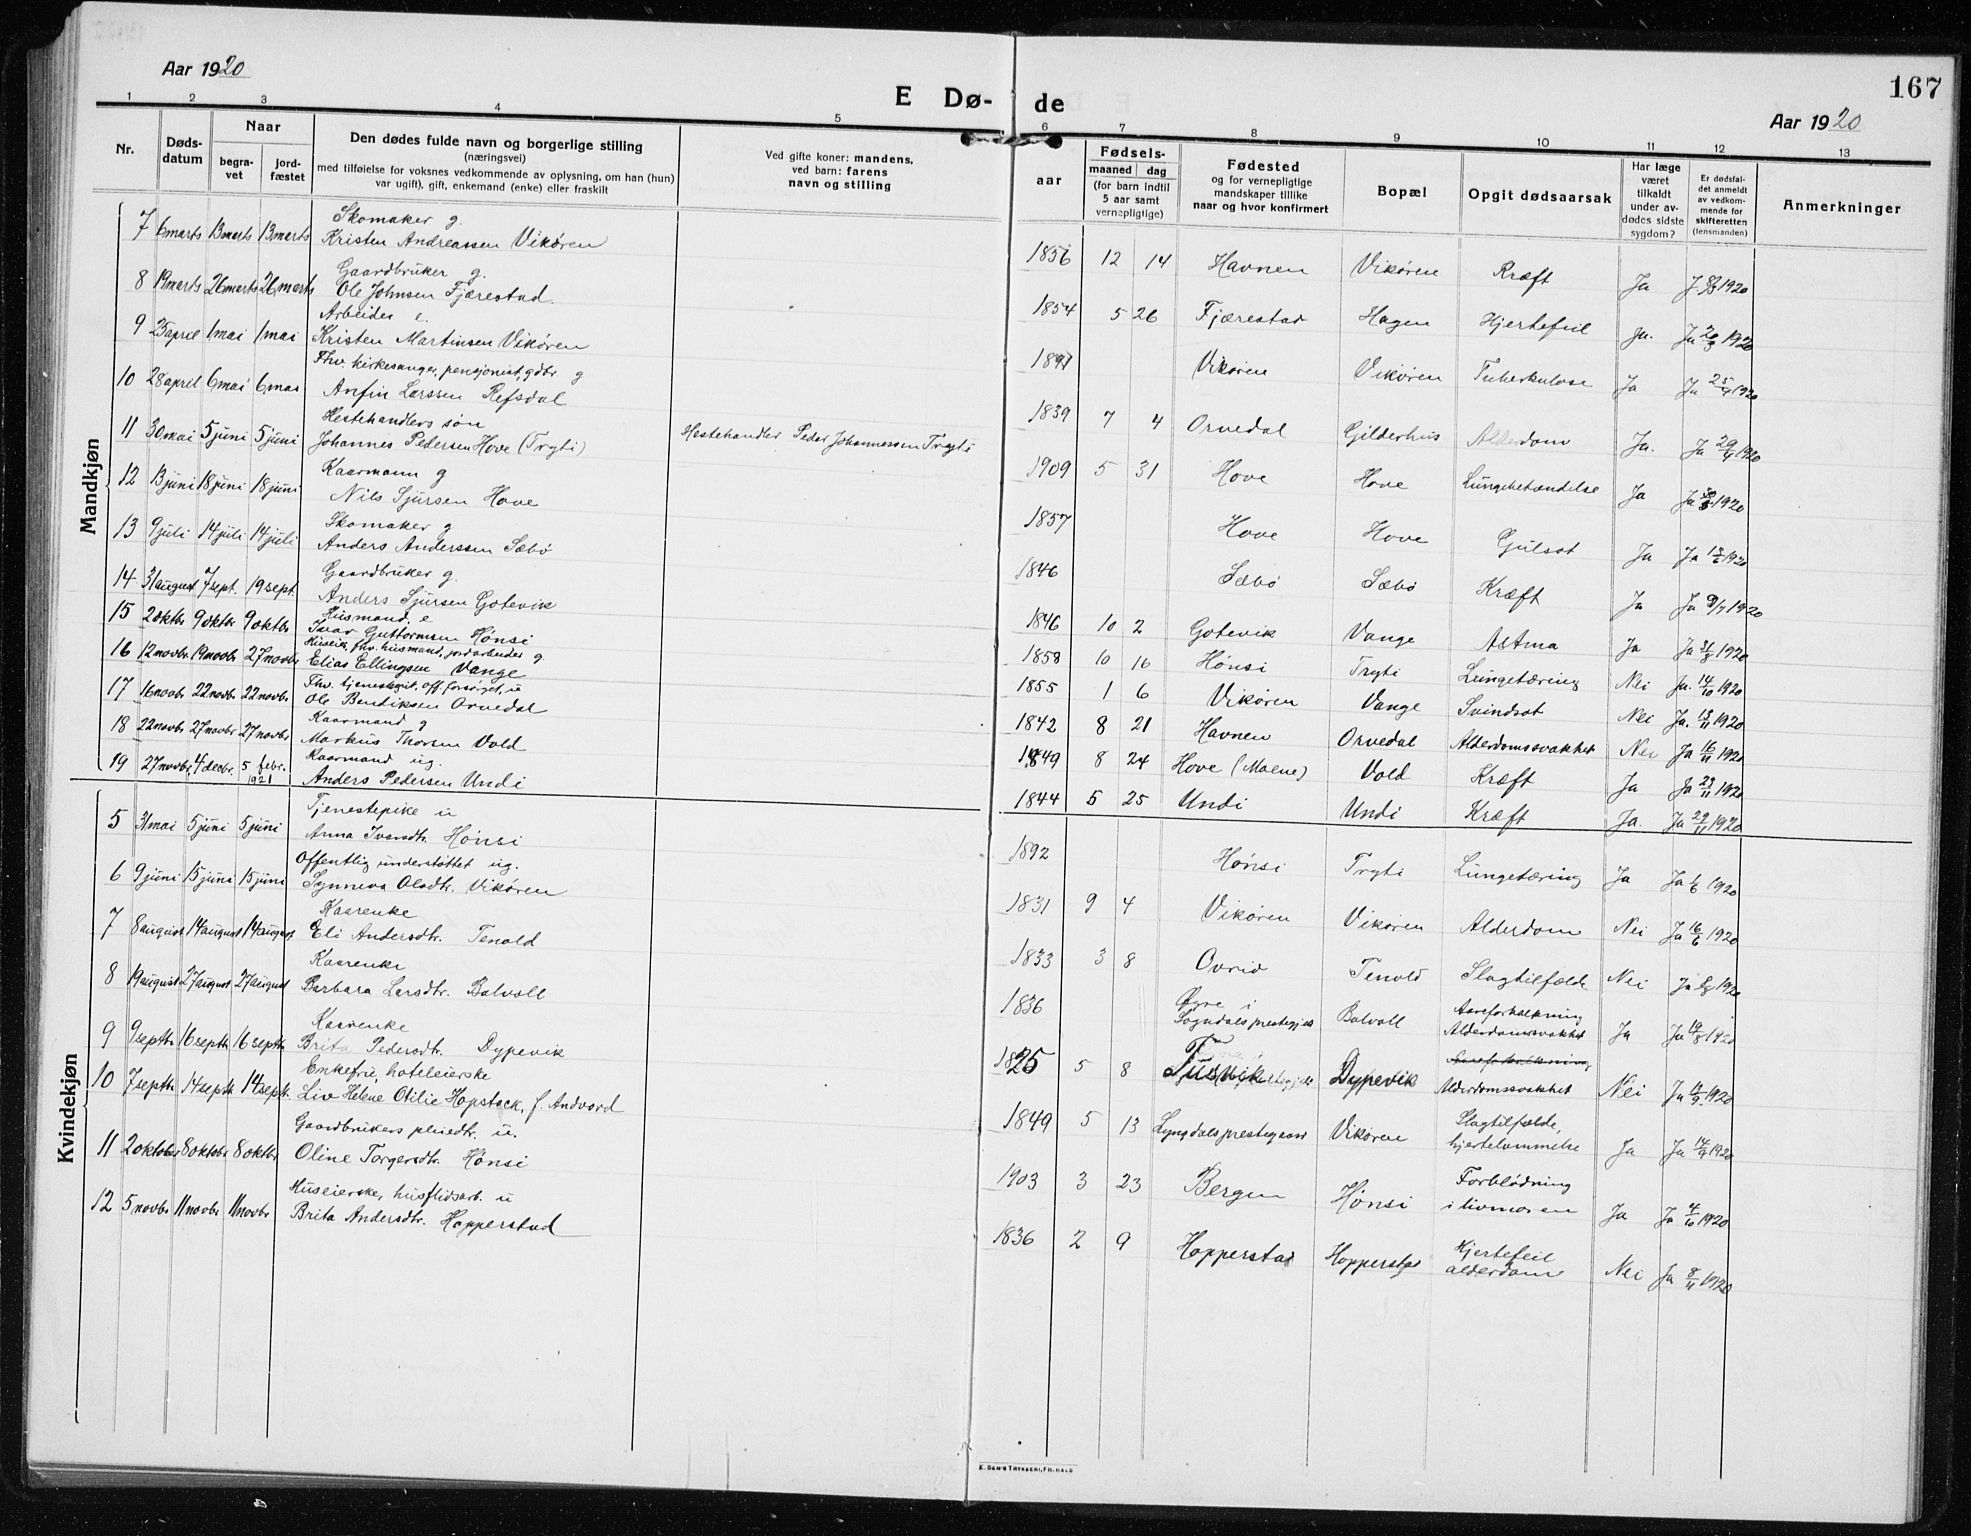 167
Aar 1920
E Dø- de
Aar 1920
1 2 3 4 5 6 7 8 9 10 11 12 13
Nr.
Døds-
datum
Naar
begra-
vet
jord-
fæstet
Den dødes fulde navn og borgerlige stilling
(næringsvei)
med tilføielse for voksnes vedkommende av oplysning, om han (hun)
var ugift), gift, enkemand (enke) eller fraskilt
Ved gifte koner: mandens,
ved barn: farens
navn og stilling
aar
Fødsels-
maaned dag
(for barn indtil
5 aar samt
vernepligtige)
Fødested
og for vernepligtige
mandskaper tillike
naar og hvor konfirmert
Bopæl
Opgit dødsaarsak
Har læge
været
tilkaldt
under av-
dødes sidste
sygdom?
Er dødsfal-
det anmeldt
av vedkom-
mende for
skifteretten
(lensmanden)
Anmerkninger
Mandkjøn
Skomaker g.
7 6 marts 13 marts 13 marts Kristen Andreassen Vikøren
1856 12 14 Havnen Vikøren Kræft Ja J. 1920
Gaardbruker g.
8 19 marts 26 marts 26 marts Ole Johnsen Fjærestad.
1854 5 26 Fjærestad Hagen Hjertefeil Ja. Ja 20/3 1920
Arbeider e.
9 25 april 1 mai 1 mai Kristen Martinsen Vikøren
Vikøren Vikøren Tuberkulose Ja Ja 25/4 1920
Fhv. kirkesanger, pensjonist, gdbr. g
10 28 april 6 mai 6 mai Anfin Larssen Refsdal
1839 7 4 Orvedal Gilderhus Alderdom Ja. Ja 29/4 1920
Hestehandlers søn
11 30 mai 5 juni 5 juni Johannes Pedersen Hove (Tryti) Hestehandler Peder Johannessen Tryti
1909 5 31 Hove Hove Lungebetændelse Ja Ja 1920
Kaarmann g
12 13 juni 18 juni 18 juni Nils Sjursen Hove
1857 Hove Hove Gulsot Ja Ja 1920
Skomaker g
13 9 juli 14 juli 14 juli Anders Anderssen Sæbø
1846 Sæbø Sæbø Kræft Ja Ja 9/7 1920
Gaardbruker g.
14 31 august 7 sept. 19 sept. Anders Sjursen Gotevik
1846 10 2 Gotevik Vange Astma Ja Ja 31/8 1920
Husmand, e
15 2 oktbr 9 oktbr 9 oktbr Ivar Guttormsen Hønsi
1858 10 16 Hønsi Tryti Lungetæring Nei Ja. 14/10 1920
Huseier, fhv. husmand, jordarbeider g
16 12 novbr 19 novbr 27 novbr Elias Ellingsen Vange
1855 1 6 Vikøren Vange Svindsot Nei Ja. 13/11 1920
Fhv. tjenestegut, off. forsørget, u
17 16 novbr 22 novbr 22 novbr Ole Bendiksen Orvedal
1842 8 21 Havnen Orvedal Alderdomssvakhet Nei Ja 16/11 1920
Kaarmand g
18 22 novbr 27 novbr 27 novbr Markus Thorsen Vold
1849 8 24 Hove (Moene) Vold Kræft Ja Ja 23/11 1920
Kaarmand ug.
19 27 novbr. 4 decbr. 5 febr. 1921 Anders Pedersen Undi
1844 5 25 Undi Undi Kræft Ja. Ja 29/11 1920
Kvindekjøn
Tjenestepike u
5 31 mai 5 juni 5 juni Anna Iversdtr. Hønsi
1892 Hønsi Tryti Lungetæring Ja Ja 1/6 1920
Offentlig understøttet ug.
6 9 juni 15 juni 15 juni Synneva Olsdtr. Vikøren
1831 9 4 Vikøren Vikøren Alderdom Nei Ja 16/6 1920
Kaarenke
7 8 august 14 august 14 august Eli Andersdtr. Tenold
1833 3 8 Ovrid Tenold Slagtilfælde Nei Ja 1920
Kaarenke
8 19 august 27 august 27 august Barbara Larsdtr. Bolvoll
1836 Øyre i Sogndals prestegjeld Bolvoll Aareforkalkning Alderdomssvakhet Ja Ja 19/8 1920
Kaarenke
9 9 septb 16 septb 16 septb Brita Pedersdtr. Dypevik
1825 5 8 Dypevik Aareforkalkning Alderdomssvakhet Nei Ja 1920
Enkefru, hoteleierske
10 7 septb. 14 septb 14 sept. Liv Helene Otilie Hopstock, f. Andvord
1849 5 13 Lyngdals prestegaard Vikøren Slagtilfælde, hjertelammelse Ja Ja 1920
Gaardbrukers pleiedtr. u.
11 2 oktober 8 oktobr 8 oktbr Oline Torgersdtr. Hønsi
1903 3 23 Bergen Hønsi Forblødning i livmoren Ja Ja 4/10 1920
Huseierske, husflidsarb. u
12 5 novbr 11 novbr 11 novbr Brita Andersdtr. Hopperstad
1836 2 9 Hopperstad Hopperstad Hjertefeil alderdom Nei Ja 8/11 1920
E. SEM'S TRYKKERI, FR.HALD